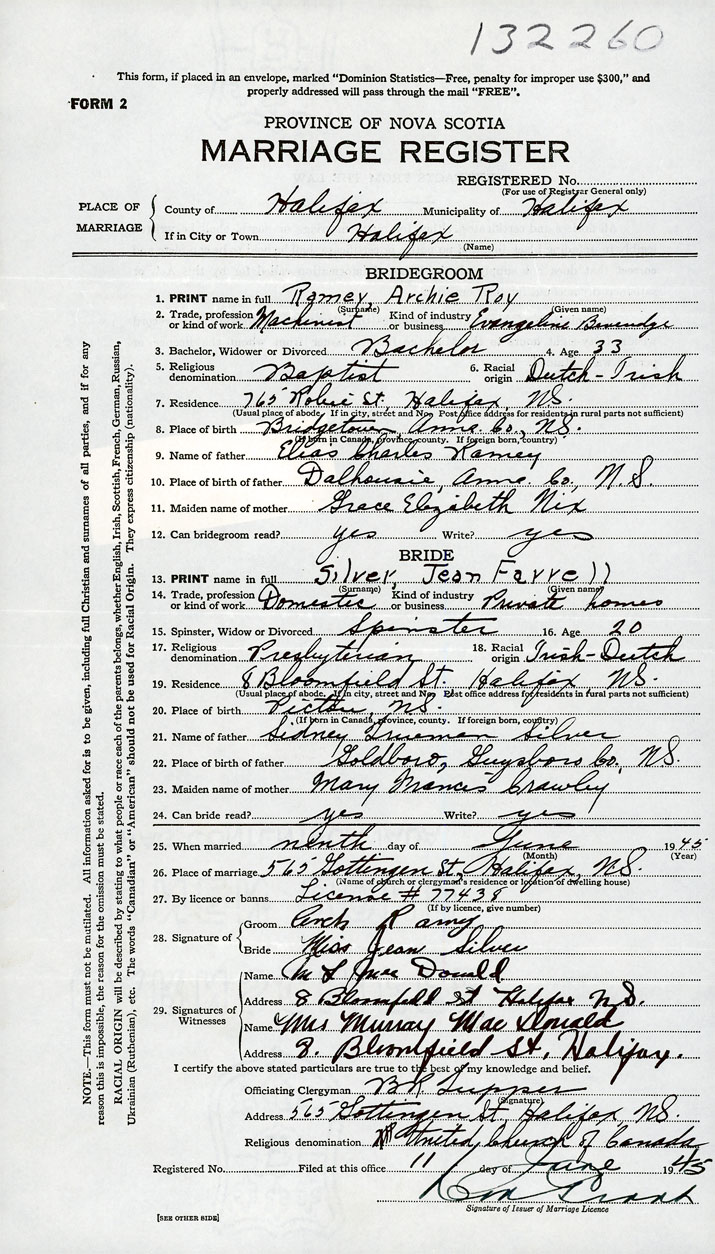 132260
This form, if placed in an envelope, marked "Dominion Statistics—Free, penalty for improper use $300," and
properly addressed will pass through the mail "FREE".
FORM 2
PROVINCE OF NOVA SCOTIA
MARRIAGE REGISTER
REGISTERED No.
(For use of Registrar General only)
PLACE OF MARRIAGE
County of Halifax Municipality of Halifax
If in City or Town Halifax
(Name)
BRIDEGROOM
1. PRINT name in full Ramey, Archie Roy
(Surname) (Given name)
2. Trade, profession or kind of work Machinist Kind of industry or business Evangeline Beverage
3. Bachelor, Widower or Divorced Bachelor 4. Age 33
5. Religious denomination Baptist 6. Racial origin Dutch-Irish
7. Residence 765 Robie St. Halifax, N.S.
(Usual place of abode. If in city, street and No. Post office address for residents in rural parts not sufficient)
8. Place of birth Bridgetown, Anna. Co., N.S.
(If born in Canada, province, county. If foreign born, country)
9. Name of father Elias Charles Ramey
10. Place of birth of father Dalhousie, Anna. Co., N.S.
11. Maiden name of mother Grace Elizabeth Nix
12. Can bridegroom read? yes Write? yes
BRIDE
13. PRINT name in full Silver, Jean Farrell
(Surname) (Given name)
14. Trade, profession or kind of work Domestic Kind of industry or business Private homes
15. Spinster, Widow or Divorced Spinster 16. Age 20
17. Religious denomination Presbyterian 18. Racial origin Irish-Dutch
19. Residence 8 Bloomfield St. Halifax, N.S.
(Usual place of abode. If in city, street and No. Post office address for residents in rural parts not sufficient)
20. Place of birth Pictou, N.S.
(If born in Canada, province, county. If foreign born, country)
21. Name of father Sidney Trueman Silver
22. Place of birth of father Goldboro, Guysboro Co., N.S.
23. Maiden name of mother Mary Frances Crawley
24. Can bride read? yes Write? yes
25. When married ninth day of June 1945
(Month) (Year)
26. Place of marriage 565 Gottingen St., Halifax, N.S.
(Name of church or clergyman's residence or location of dwelling house)
27. By licence or banns License # 77438
(If by licence, give number)
28. Signature of
Groom Arch Ramey
Bride Miss Jean Silver
29. Signatures of Witnesses
Name Mac Donald
Address 8 Bloomfield St Halifax N.S.
Name Mrs Murray MacDonald
Address 8. Bloomfield St, Halifax.
I certify the above stated particulars are true to the best of my knowledge and belief.
Officiating Clergyman Tupper
(Signature)
Address 565 Gottingen St, Halifax, N.S.
Religious denomination United Church of Canada
Registered No. Filed at this office 11 day of June 1945
Signature of Issuer of Marriage Licence
[SEE OTHER SIDE]
NOTE.—This form must not be mutilated. All information asked for is to be given, including full Christian and surnames of all parties, and if for any
reason this is impossible, the reason for the omission must be stated.
RACIAL ORIGIN will be described by stating to what people or race each of the parents belongs, whether English, Irish, Scottish, French, German, Russian,
Ukrainian (Ruthenian), etc. The words "Canadian" or "American" should not be used for Racial Origin. They express citizenship (nationality).